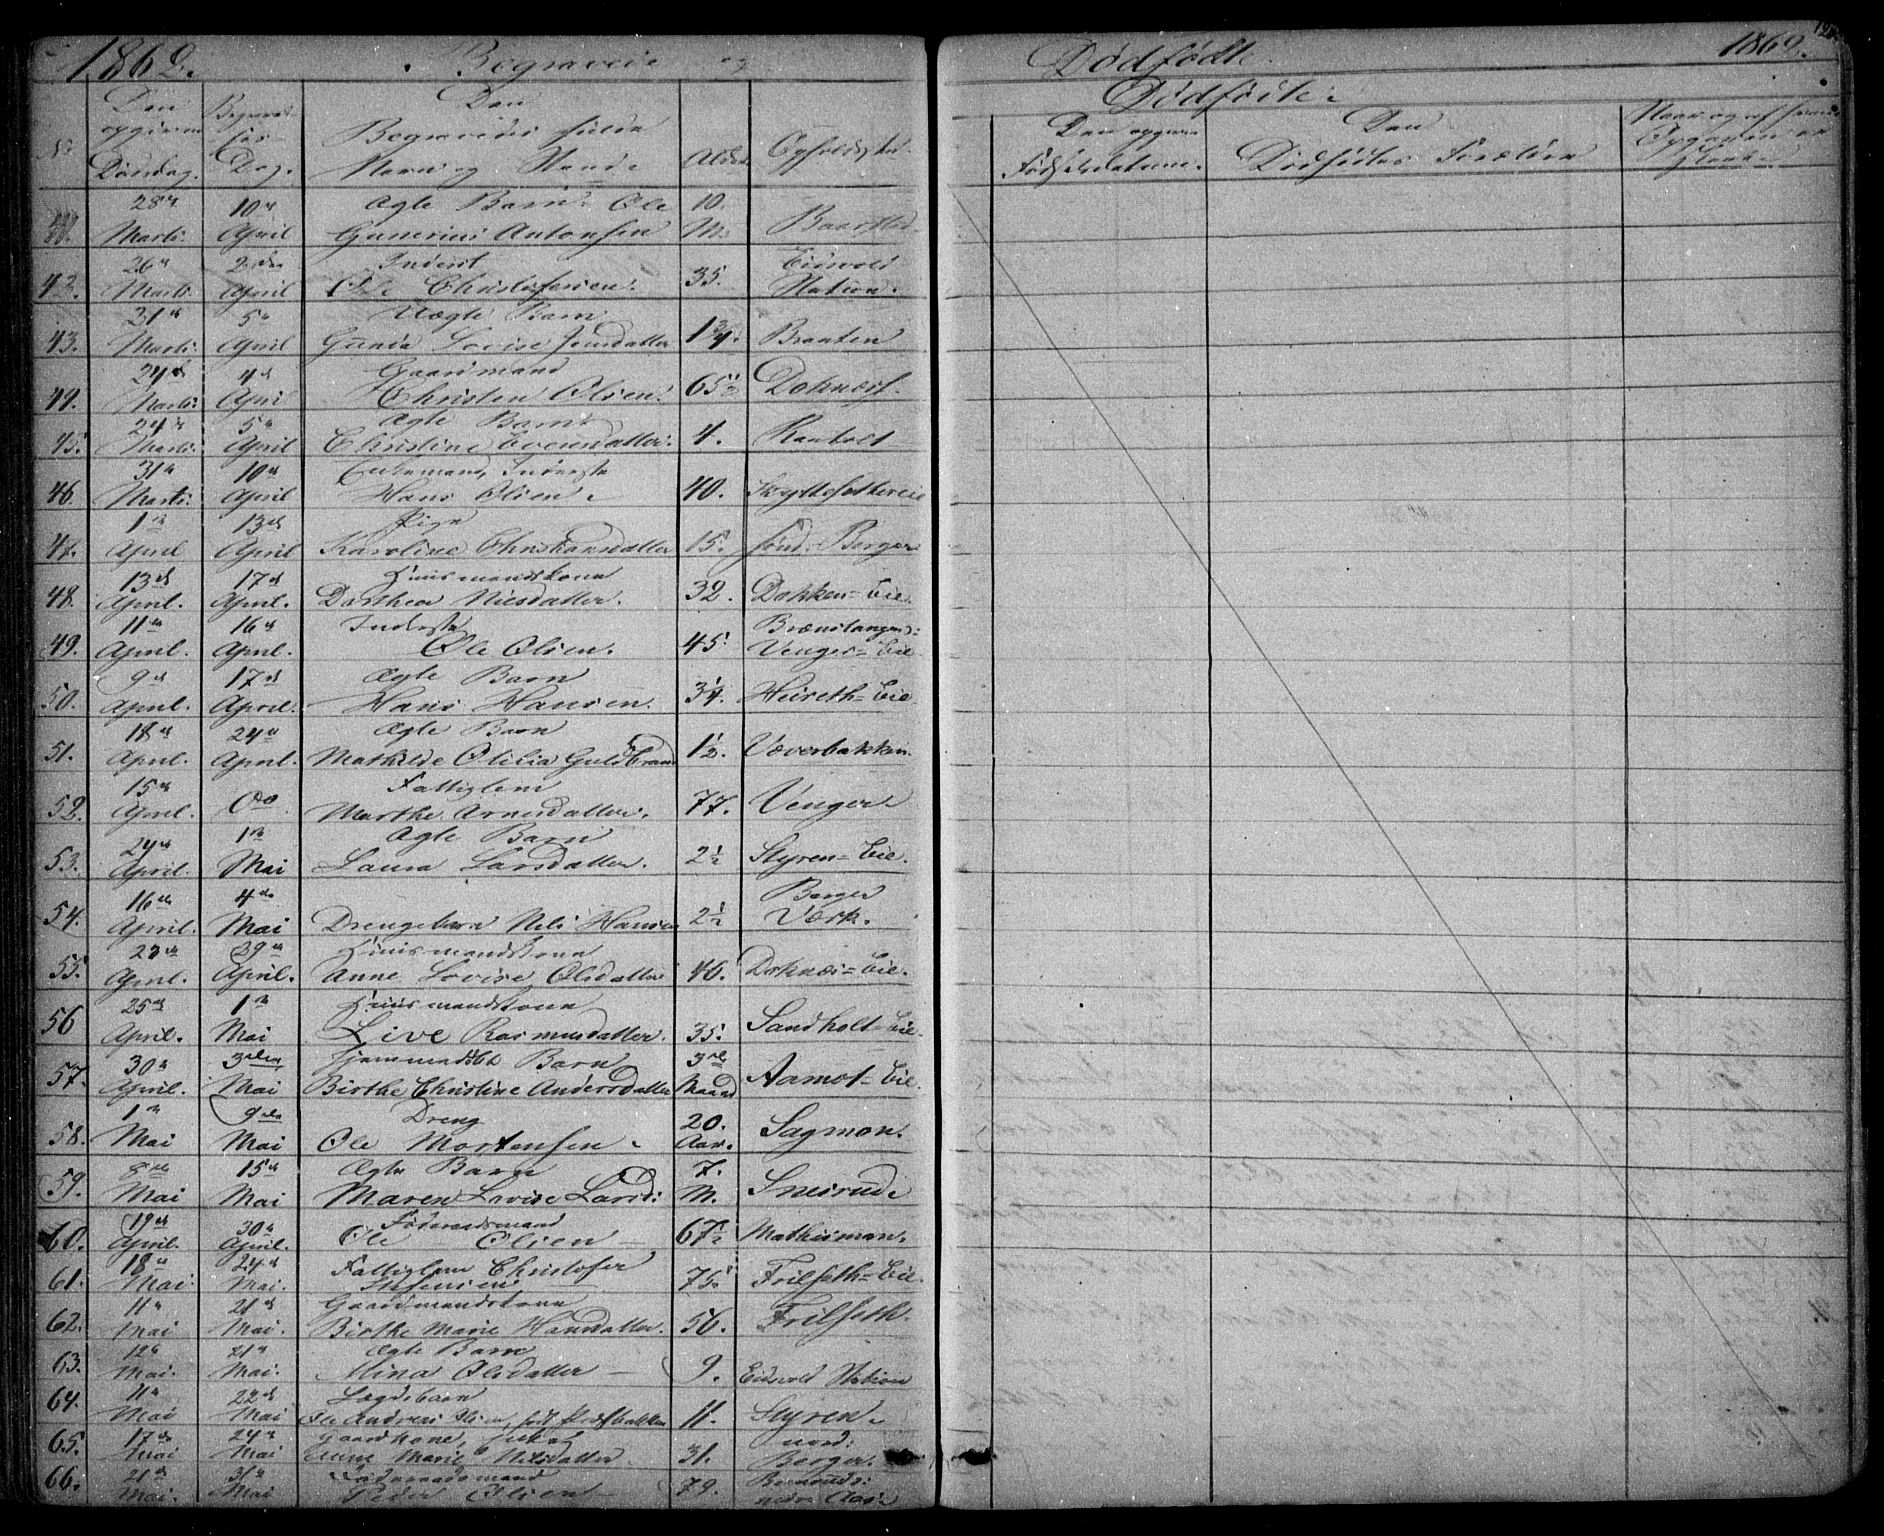 1862. Begravede og
Den opgivne Dødsdag. Dag. Den Begravedes fulde Navn og Stand. Alder Opholdssted.
28de Marts. 10de April Ægte Barn Ole Gunerius Antonsen 10. M.
42. 26de Marts. 2den April Inderst Ole Christofersen. 35. Eidsvold Station.
43. 21de Marts. 5te April Uægte Barn Gunia Lovise Jensdatter 1 3/4. Braaten
44. 24de Marts. 4de April Gaardmand Christen Olsen. 65 1/2 Doknæs.
45. 24de Marts. 5te April Ægte Barn Christine Evensdatter. 4. Raaholt
46. 31te Marts. 10de April Enkemand, Inderste Hans Olsen. 40.
47. 1ste April 13de April Pige Karoline Christiansdatter 15. sönd. Berger
48. 13de April. 17de April. Huusmandskone Dorthea Nilsdatter. 32. Dokken-Eie.
49. 11te April. 16de April. Inderste Ole Olsen. 45. Venger-Eie
50. 9de April. 17de April. Ægte Barn Hans Hansen. 3 1/4. Heireth-Eie
51. 18de April. 24de April. Ægte Barn Mathilde Olilia Guldbrand 1 1/2. Væverbakken
52. 15de April. Do Fattiglem Marthe Arnesdatter. 77. Venger
53. 24de April. 1ste Mai Ægte Barn Laura Larsdatter. 2 1/2 Styren-Eie.
54. 16de April. 4de Mai Drengebarn Nils Hansen 2 1/2 Berger Værk.
55. 23de April. 29de April. Huusmandskone Anne Lovise Olsdatter 46. Doknæs-Eie.
56 25de April. 1ste Mai Huusmandskone Live Rasmusdatter. 35. Sandholt-Eie.
57. 30te April. 3die Mai Hjemmedøbt Barn Birthe Christine Andersdatter 3 Maaned Aamot-Eie.
58. 1ste Mai 9de Mai Dreng Ole Mortensen. 20. Aar. Sagmon.
59. 8de Mai 15de Mai Ægte Barn Maren Lovise Larsd: 7. M. Sneisrud.
60. 19de April. 30te April. Føderaadsmand Ole Olsen 67 1/2 Mathismon.
61. 18de Mai. 24de Mai. Fattiglem Christofer 75. Frilseth-Eie.
62. 11te Mai 21de Mai. Gaardmandskone Birthe Marie Hansdatter. 56. Frilseth.
63. 12te Mai. 21de Mai. Ægte Barn Mina Olsdatter 9. Eidsvold Station
64. 11te Mai 22de Mai Lægdebarn Ole Andreas Olsen, født 11. Styren.
65. 17de Mai 24de Mai Gaardkone, Anne Marie Nilsdatter 31. nord: Berger.
66. 21de Mai. 31te Mai Føderaadsmand Peder Olsen 79.
Dødfødte. 1862.
Dødfødte.
Den opgivne Fødselsdatum. Den Dødfødtes Forældre Naar og af hvem Opgaven er skeet.